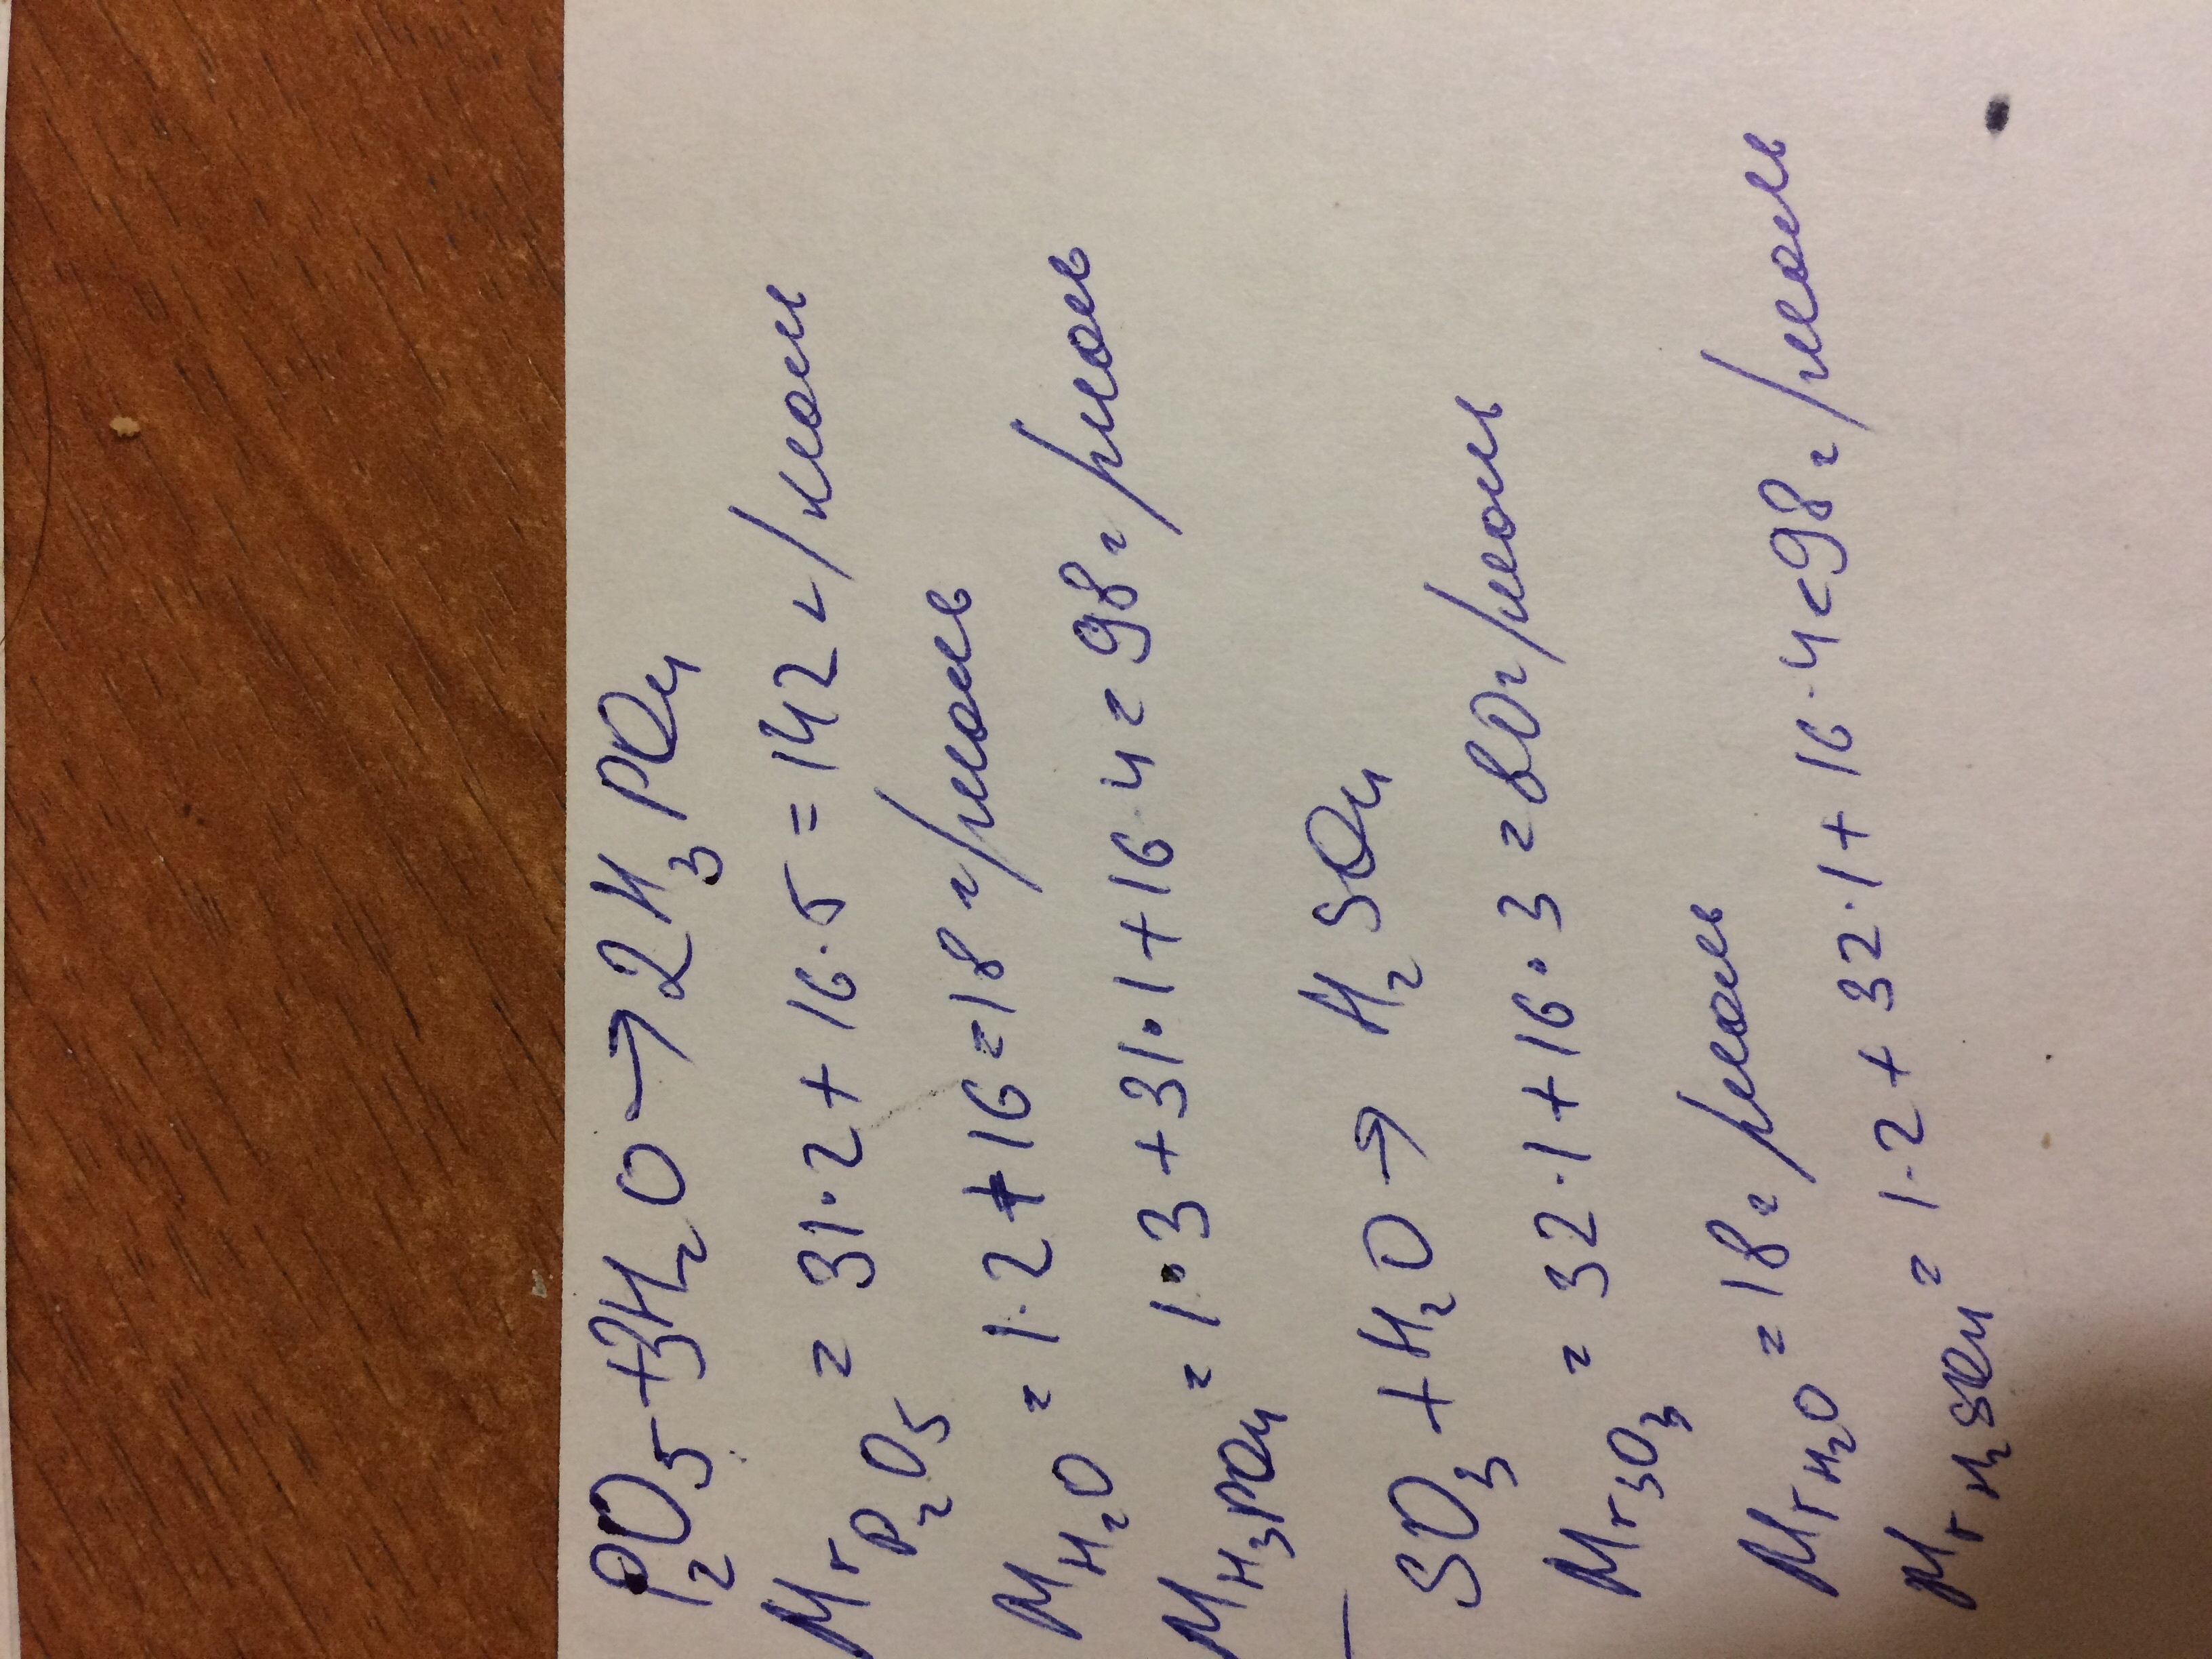 P₂O₅+3H₂O→2H₃PO₄
Mr P₂O₅ = 31·2+16·5=142 г/моль
M H₂O = 1·2+16=18 г/моль
M H₃PO₄ = 1·3+31·1+16·4=98 г/моль
SO₃+H₂O→ H₂SO₄
Mr SO₃ = 32·1+16·3=80 г/моль
Mr H₂O =18 г/моль
Mr H₂SO₄ = 1·2+32·1+16·4=98 г/моль